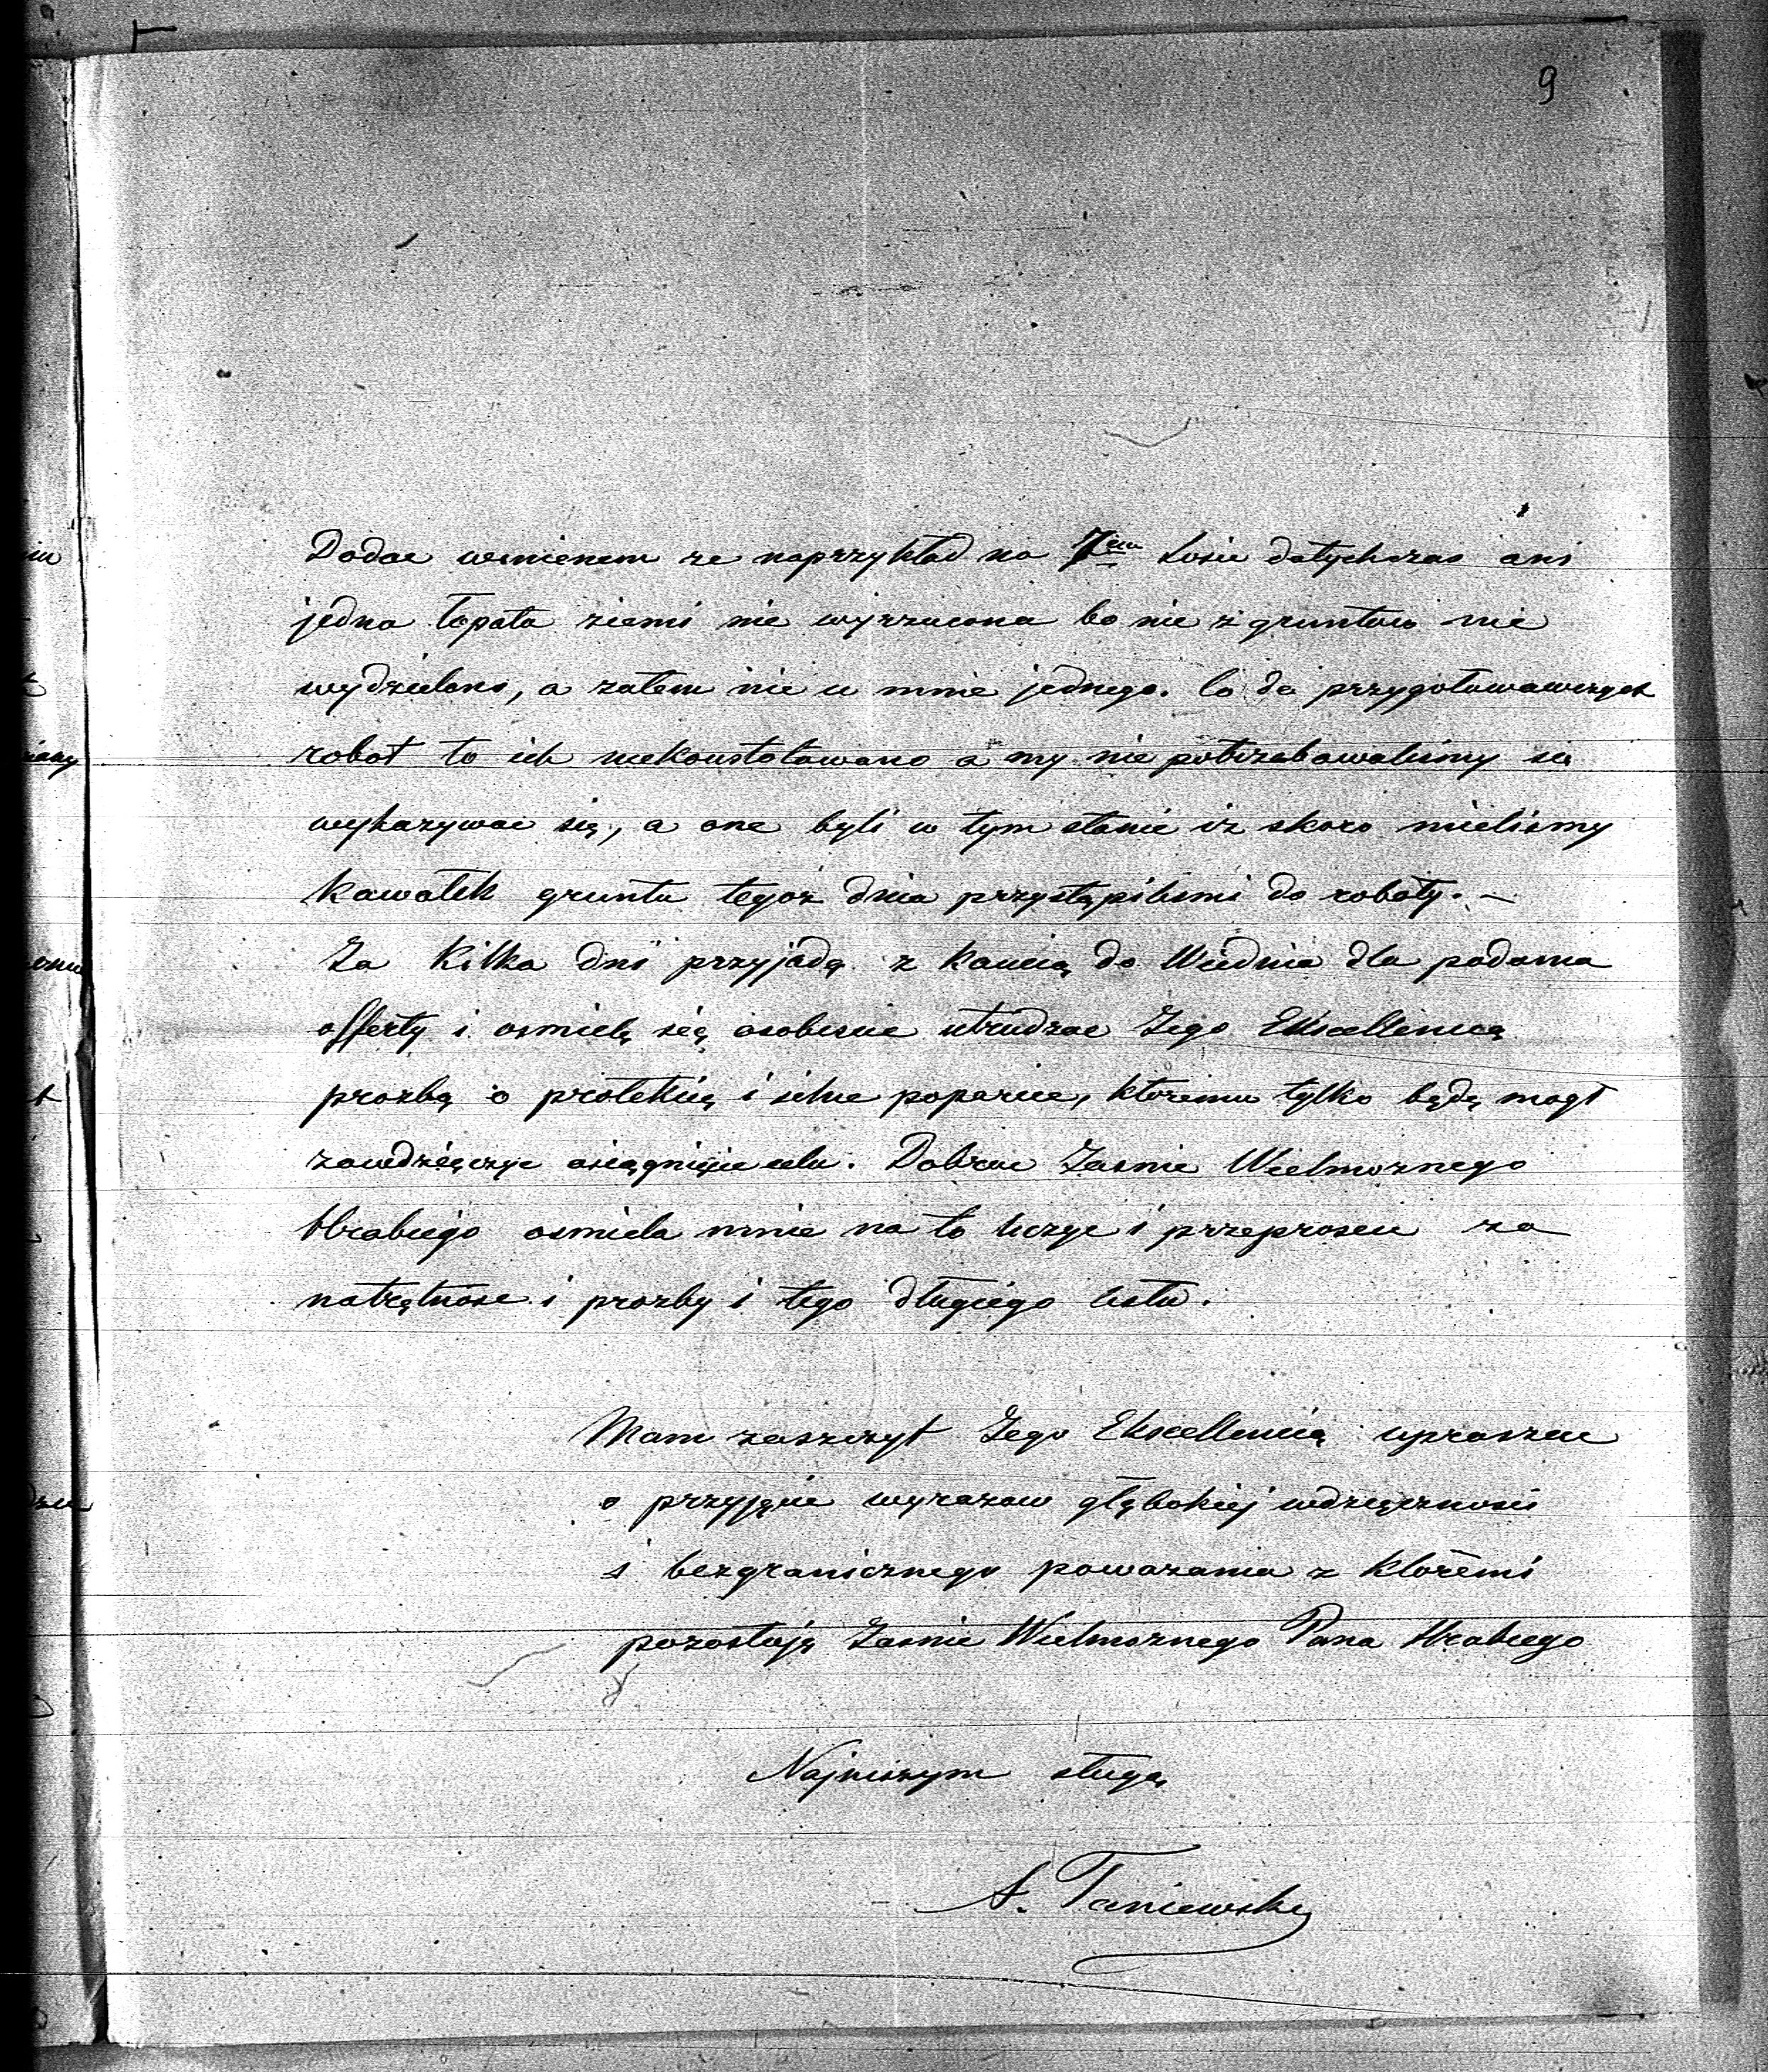 9
Dodac winienem ze naprzykład na 7ym Losie dotychczas ani
jedna łopata ziemi nie wyrzucona bo nic z gruntow nie
wydzielono, a zatem nie u mnie jednego. Co do przygotowawczych
robot to ich niekonstatowano a my nie potrzebowalismy
wykazywac się, a one byli w tym stanie iz skoro mielismy
kawałek gruntu tegoż dnia przystąpilismi do roboty. –
Za kilka dni przyjadę z kaucią do Wiednia dla podania
offerty i osmielę się osobiscie utrudzac Jego Ekscellencią
prozbą o protekcią i silne poparcie, ktoremu tylko będę mogł
zawdzięczyc osiągnięcie celu. Dobroc Jasnie Wielmoznego
Hrabiego osmiela mnie na to liczyc i przeprosic za
natrętnosc i prozby i tego długiego listu.
Mam zaszczyt Jego Ekscellencią upraszac
o przyjęcie wyrazow głębokiej wdzięcznosci
i bezgranicznego powazania z ktoremi
pozostaję Jasnie Wielmoznego Pana Hrabiego
Najniszym sługą
A. Taniewski